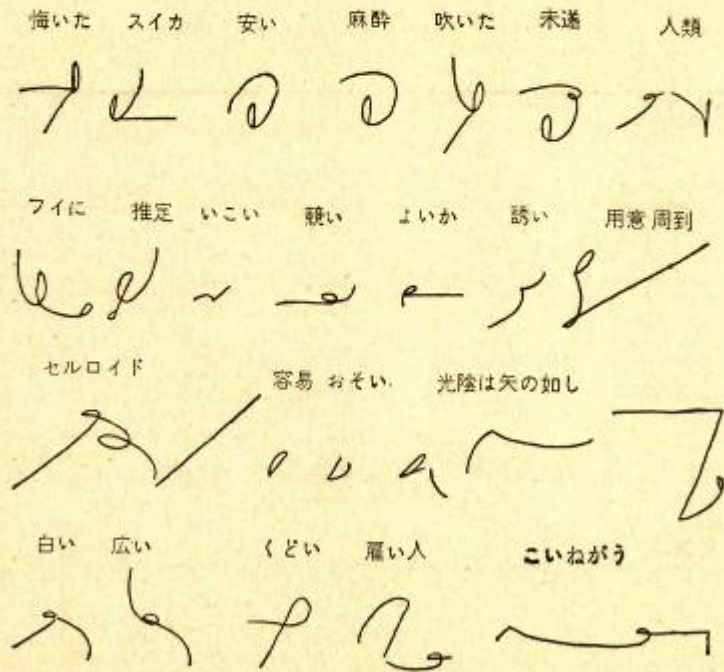 悔いた スイカ 安い 麻酔 吹いた 未遂 人類
フイに 推定 いこい 競い よいか 誘い 用意周到
セルロイド 容易 おそい. 光陰は矢の如し
白い 広い くどい 雇い人 こいねがう